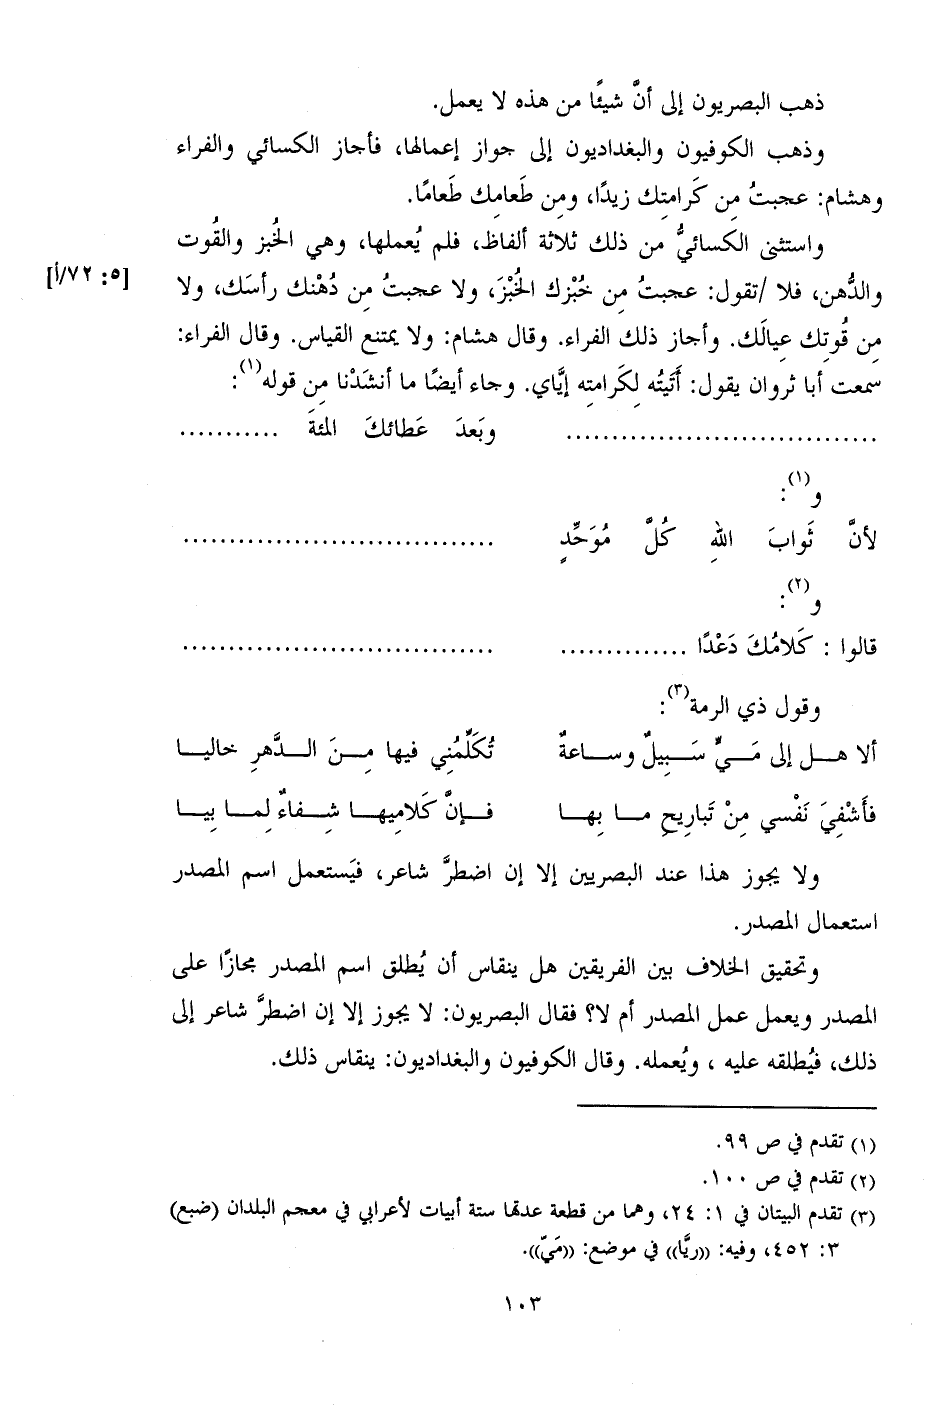 ذهب البصريون إلى أنَّ شيئًا من هذه لا يعمل.
وذهب الكوفيون والبغداديون إلى جواز إعمالها، فأجاز الكسائي والفراء
وهشام: عجبتُ مِن كَرامتِك زيدًا، ومِن طَعامِك طَعامًا.
واستثنى الكسائيُّ من ذلك ثلاثة ألفاظ، فلم يُعملها، وهي الخُبز والقُوت
والدُّهن، فلا /تقول: عجبتُ مِن خُبْزِك الخُبْزَ، ولا عجبتُ مِن دُهْنك رأسَك، ولا [٥: ٧٢/أ]
مِن قُوتِك عِيالَك. وأجاز ذلك الفراء. وقال هشام: ولا يمتنع القياس. وقال الفراء:
سمعت أبا ثروان يقول: أَتَيتُه لِكَرامتِه إيَّاي. وجاء أيضًا ما أنشَدْنا مِن قوله(١):
................................. وبَعدَ عَطائكَ المئةَ ...........
و(١):
لأنَّ ثَوابَ اللهِ كُلَّ مُوَحِّدٍ .................................
و(٢):
قالوا : كَلامُكَ دَعْدًا .............. .................................
وقول ذي الرمة(٣):
ألا هـل إلى مَـيٍّ سَـبِيلٌ وسـاعةٌ تُكَلِّمُنِي فيها مِـنَ الـدَّهرِ خاليـا
فأَشْفِيَ نَفْسي مِنْ تَبارِيحِ مـا بِهـا فـإنَّ كَلامِيهـا شِـفاءٌ لِمـا بِيـا
ولا يجوز هذا عند البصريين إلا إن اضطرَّ شاعر، فيَستعمل اسم المصدر
استعمال المصدر.
وتحقيق الخلاف بين الفريقين هل ينقاس أن يُطلق اسم المصدر مجازًا على
المصدر ويعمل عمل المصدر أم لا؟ فقال البصريون: لا يجوز إلا إن اضطرَّ شاعر إلى
ذلك، فيُطلقه عليه ، ويُعمله. وقال الكوفيون والبغداديون: ينقاس ذلك.
(١) تقدم في ص ٩٩.
(٢) تقدم في ص ١٠٠.
(٣) تقدم البيتان في ١: ٢٤، وهما من قطعة عدتها ستة أبيات لأعرابي في معجم البلدان (ضبع)
٣: ٤٥٢، وفيه: ((ريَّا)) في موضع: ((مَيّ)).
١٠٣